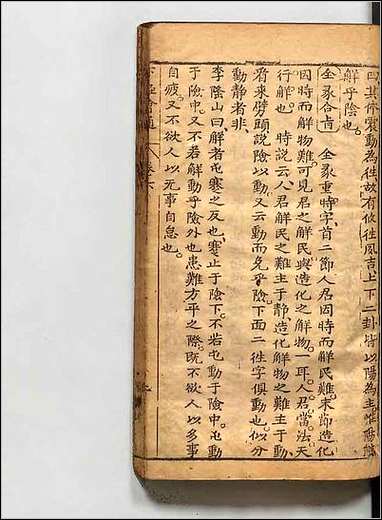 曰其作震動為徃故有攸徃夙吉上下二卦皆以陽為主惟陽能
解乎陰也
全彖合㫖 全彖重時字首二節人君因時而解民難末節造化
因時而解物難可見君之解民與造化之解物一耳人君當法天
行解也 時說云人君解民之難主于靜造化解物之難主于動
看來劈頭說險以動又云動而免乎險下面二徃字俱動也似分
動靜者非
李隆山曰解者屯蹇之反也蹇止于險下不若屯動于險中屯動
于險中又不若解動乎險外也患難方平之際既不欲人以多事
自疲又不欲人以无事自息也